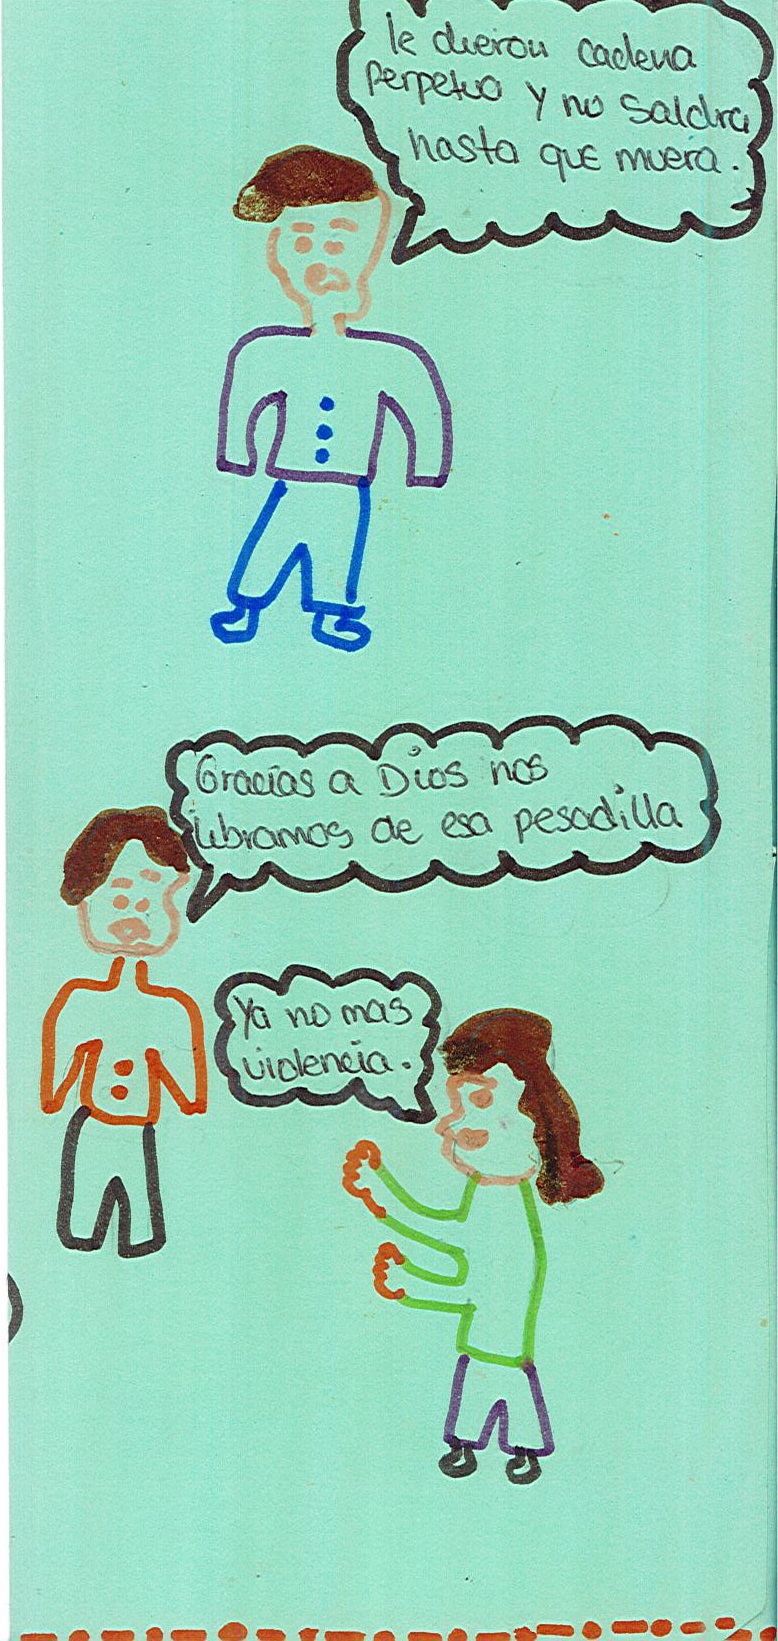 le dieron cadena
perpetua y no saldra
hasta que muera.
Gracias a Dios nos
libramos de esa pesadilla
Ya no mas
violencia.